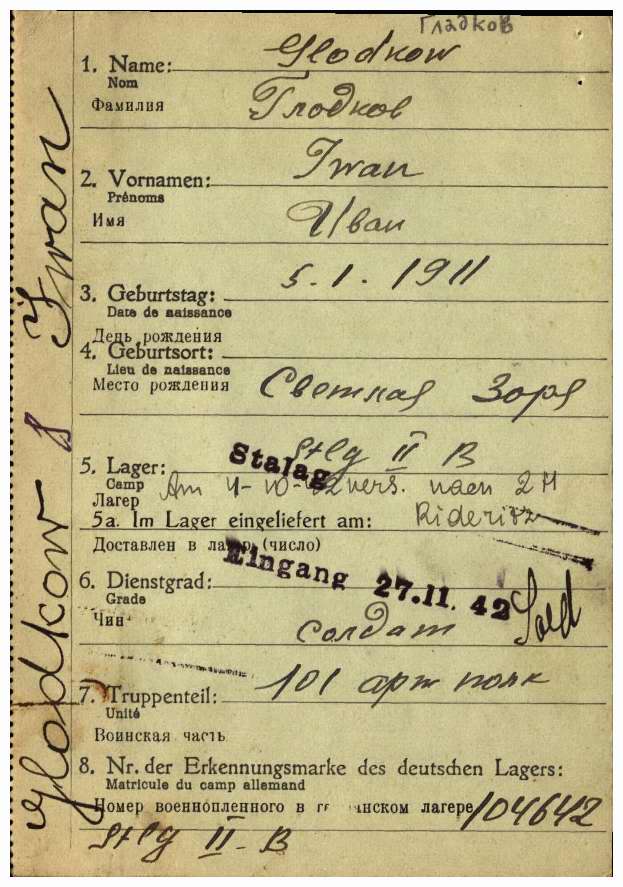 Гладков
1. Name: Glodkow
Nom
Фамилия Глодков
2. Vornamen: Iwan
Prénoms
Имя Иван
3. Geburtstag: 5.1.1911
Date de naissance
День рождения
4. Geburtsort:
Lieu de naissance
Место рождения Светлая Зоря
5. Lager: Stlg II B
Stalag
Camp
Лагер Am 4-10-42 vers. nach 2 H
5a. Im Lager eingeliefert am: Rideritz
Доставлен в лагер (число)
Eingang 27.11.42
6. Dienstgrad: Sold
Grade
Чин солдат
7. Truppenteil: 101 арт полк
Unité
Воинская часть
8. Nr. der Erkennungsmarke des deutschen Lagers:
Matricule du camp allemand
Номер военнопленного в германском лагере 104642
Stlg II-B
Glodkow Iwan